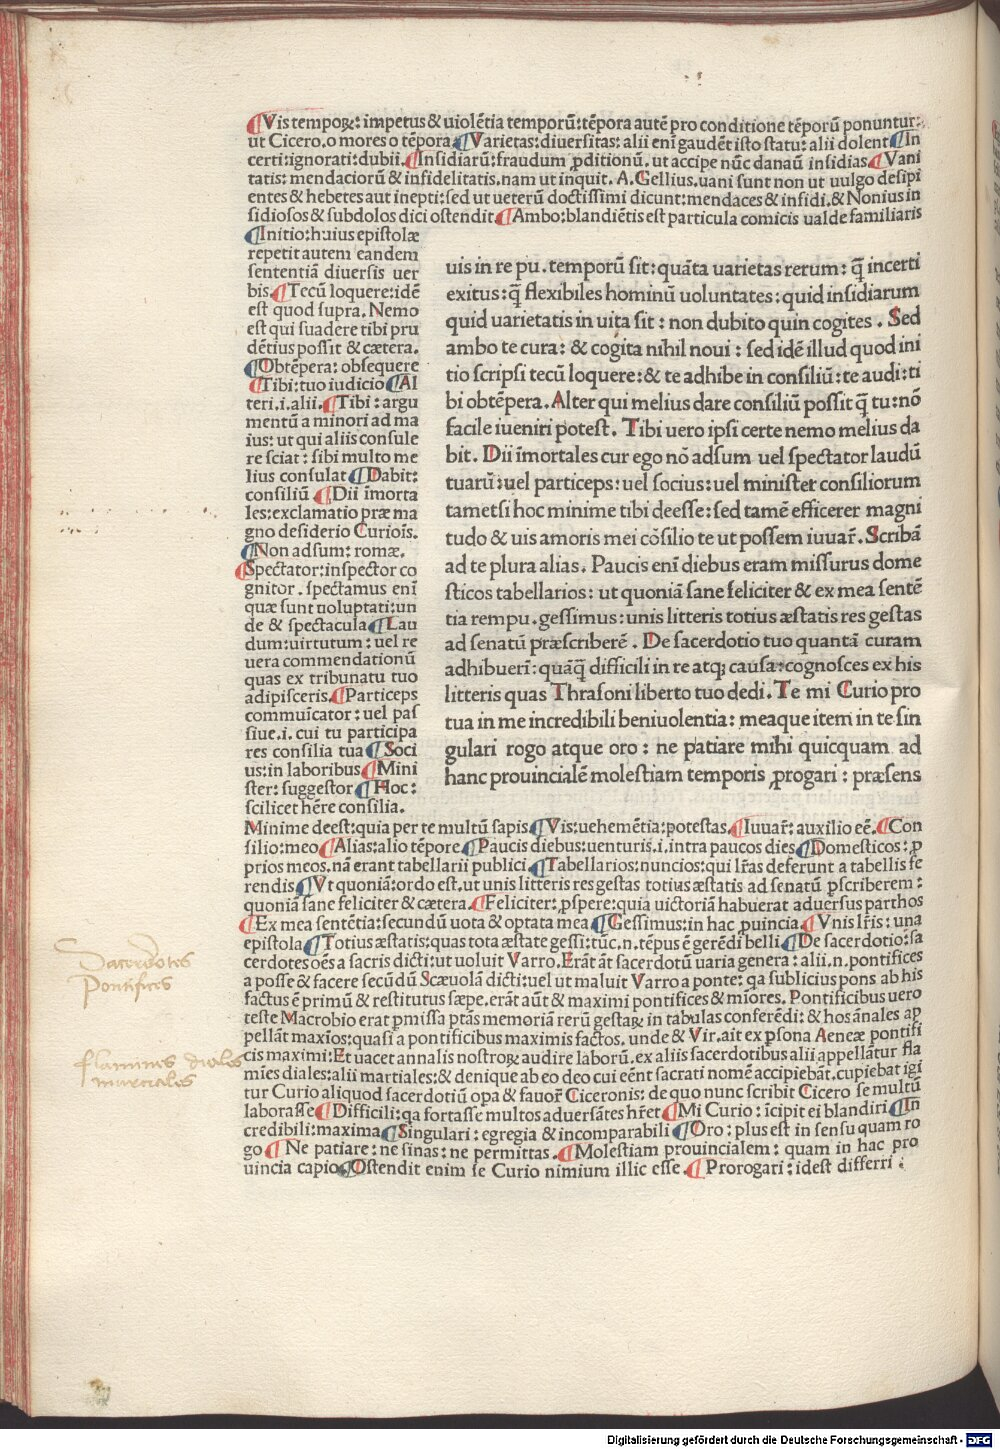 ¶Vis tempoꝝ: impetus & uiolētia temporū: tēpora autē pro conditione tēporū ponuntur:
ut Cicero, o mores o tēpora ¶Varietas: diuersitas: alii enī gaudēt isto statu: alii dolent ¶In
certi: ignorati: dubii. ¶Insidiarū: fraudum ꝓditionū. ut accipe nūc danaū insidias ¶Vani
tatis: mendaciorū & infidelitatis. nam ut inquit. A. Gellius. uani sunt non ut uulgo desipi
entes & hebetes aut inepti: sed ut ueterū doctissimi dicunt: mendaces & infidi. & Nonius in
sidiosos & subdolos dici ostendit ¶Ambo: blandiētis est particula comicis ualde familiaris
¶Initio: huius epistolæ
repetit autem eandem
sententiā diuersis uer
bis. ¶Tecū loquere: idē
est quod supra. Nemo
est qui suadere tibi pru
dētius possit & cætera.
¶Obtēpera: obsequere
¶Tibi: tuo iudicio ¶Al
teri. i. alii. ¶Tibi: argu
mentū a minori ad ma
ius: ut qui aliis consule
re sciat: sibi multo me
lius consulat ¶Dabit:
consiliū ¶Dii īmorta
les: exclamatio præ ma
gno desiderio Curiois.
¶Non adsum: romæ.
¶Spectator: inspector co
gnitor. spectamus enī
quæ sunt uoluptati: un
de & spectacula ¶Lau
dum: uirtutum: uel re
uera commendationū
quas ex tribunatu tuo
adipisceris. ¶Particeps
commuicator: uel pas
siue. i. cui tu participa
res consilia tua ¶Soci
us: in laboribus ¶Mini
ster: suggestor ¶Hoc:
scilicet hēre consilia.
uis in re pu. temporū sit: quāta uarietas rerum: q̄ incerti
exitus: q̄ flexibiles hominū uoluntates: quid insidiarum
quid uarietatis in uita sit: non dubito quin cogites. Sed
ambo te cura: & cogita nihil noui: sed idē illud quod ini
tio scripsi tecū loquere: & te adhibe in consiliū: te audi: ti
bi obtēpera. Alter qui melius dare consiliū possit q̄ tu: nō
facile iueniri potest. Tibi uero ipsi certe nemo melius da
bit. Dii īmortales cur ego nō adsum uel spectator laudū
tuarū: uel particeps: uel socius: uel minister consiliorum
tametsi hoc minime tibi deesse: sed tamē efficerer magni
tudo & uis amoris mei cōsilio te ut possem iuuar̄. Scribā
ad te plura alias. Paucis enī diebus eram missurus dome
sticos tabellarios: ut quoniā sane feliciter & ex mea sentē
tia rempu. gessimus: unis litteris totius æstatis res gestas
ad senatū præscriberē. De sacerdotio tuo quantā curam
adhibueri: quāq̄ difficili in re atq; causa: cognosces ex his
litteris quas Thrasoni liberto tuo dedi. Te mi Curio pro
tua in me incredibili beniuolentia: meaque item in te sin
gulari rogo atque oro: ne patiare mihi quicquam ad
hanc prouincialē molestiam temporis ꝓrogari: præsens
Minime deest: quia per te multū sapis ¶Vis: uehemētia: potestas. ¶Iuuar̄: auxilio eē. ¶Con
silio: meo ¶Alias: alio tēpore ¶Paucis diebus: uenturis. i. intra paucos dies ¶Domesticos: ꝓ
prios meos. nā erant tabellarii publici ¶Tabellarios: nuncios: qui lr̄as deferunt a tabellis fe
rendis ¶Vt quoniā: ordo est. ut unis litteris res gestas totius æstatis ad senatū pscriberem:
quoniā sane feliciter & cætera. ¶Feliciter: ꝓspere: quia uictoriā habuerat aduersus parthos
¶Ex mea sentētia: secundū uota & optata mea ¶Gessimus: in hac ꝓuincia. ¶Vnis lr̄is: una
epistola ¶Totius æstatis: quas tota æstate gessi: tūc. n. tēpus ē gerēdi belli ¶De sacerdotio: sa
cerdotes oēs a sacris dicti: ut uoluit Varro. Erāt āt sacerdotū uaria genera: alii. n. pontifices
a posse & facere secūdū Scæuolā dicti: uel ut maluit Varro a ponte: qa sublicius pons ab his
factus ē primū & restitutus sæpe. erāt aūt & maximi pontifices & miōres. Pontificibus uero
teste Macrobio erat pmissa ptās memoriā rerū gestaꝝ in tabulas conferēdi: & hos ānales ap
pellāt maxīos: quasi a pontificibus maximis factos. unde & Vir. ait ex psona Aeneæ pontifi
cis maximi: Et uacet annalis nostroꝝ audire laborū. ex aliis sacerdotibus alii appellātur fla
mīes diales: alii martiales: & denique ab eo deo cui eēnt sacrati nomē accipiebāt. cupiebat igi
tur Curio aliquod sacerdotiū opa & fauor̄ Ciceronis: de quo nunc scribit Cicero se multū
laborasse ¶Difficili: qa fortasse multos aduersātes hr̄et ¶Mi Curio: īcipit ei blandiri ¶In
credibili: maxima ¶Singulari: egregia & incomparabili ¶Oro: plus est in sensu quam ro
go ¶Ne patiare: ne sinas: ne permittas. ¶Molestiam prouincialem: quam in hac pro
uincia capio ¶Ostendit enim se Curio nimium illic esse ¶Prorogari: idest differri.
Sacerdotes
Pontifices
flamines diales
murciales
Digitalisierung gefördert durch die Deutsche Forschungsgemeinschaft - DFG